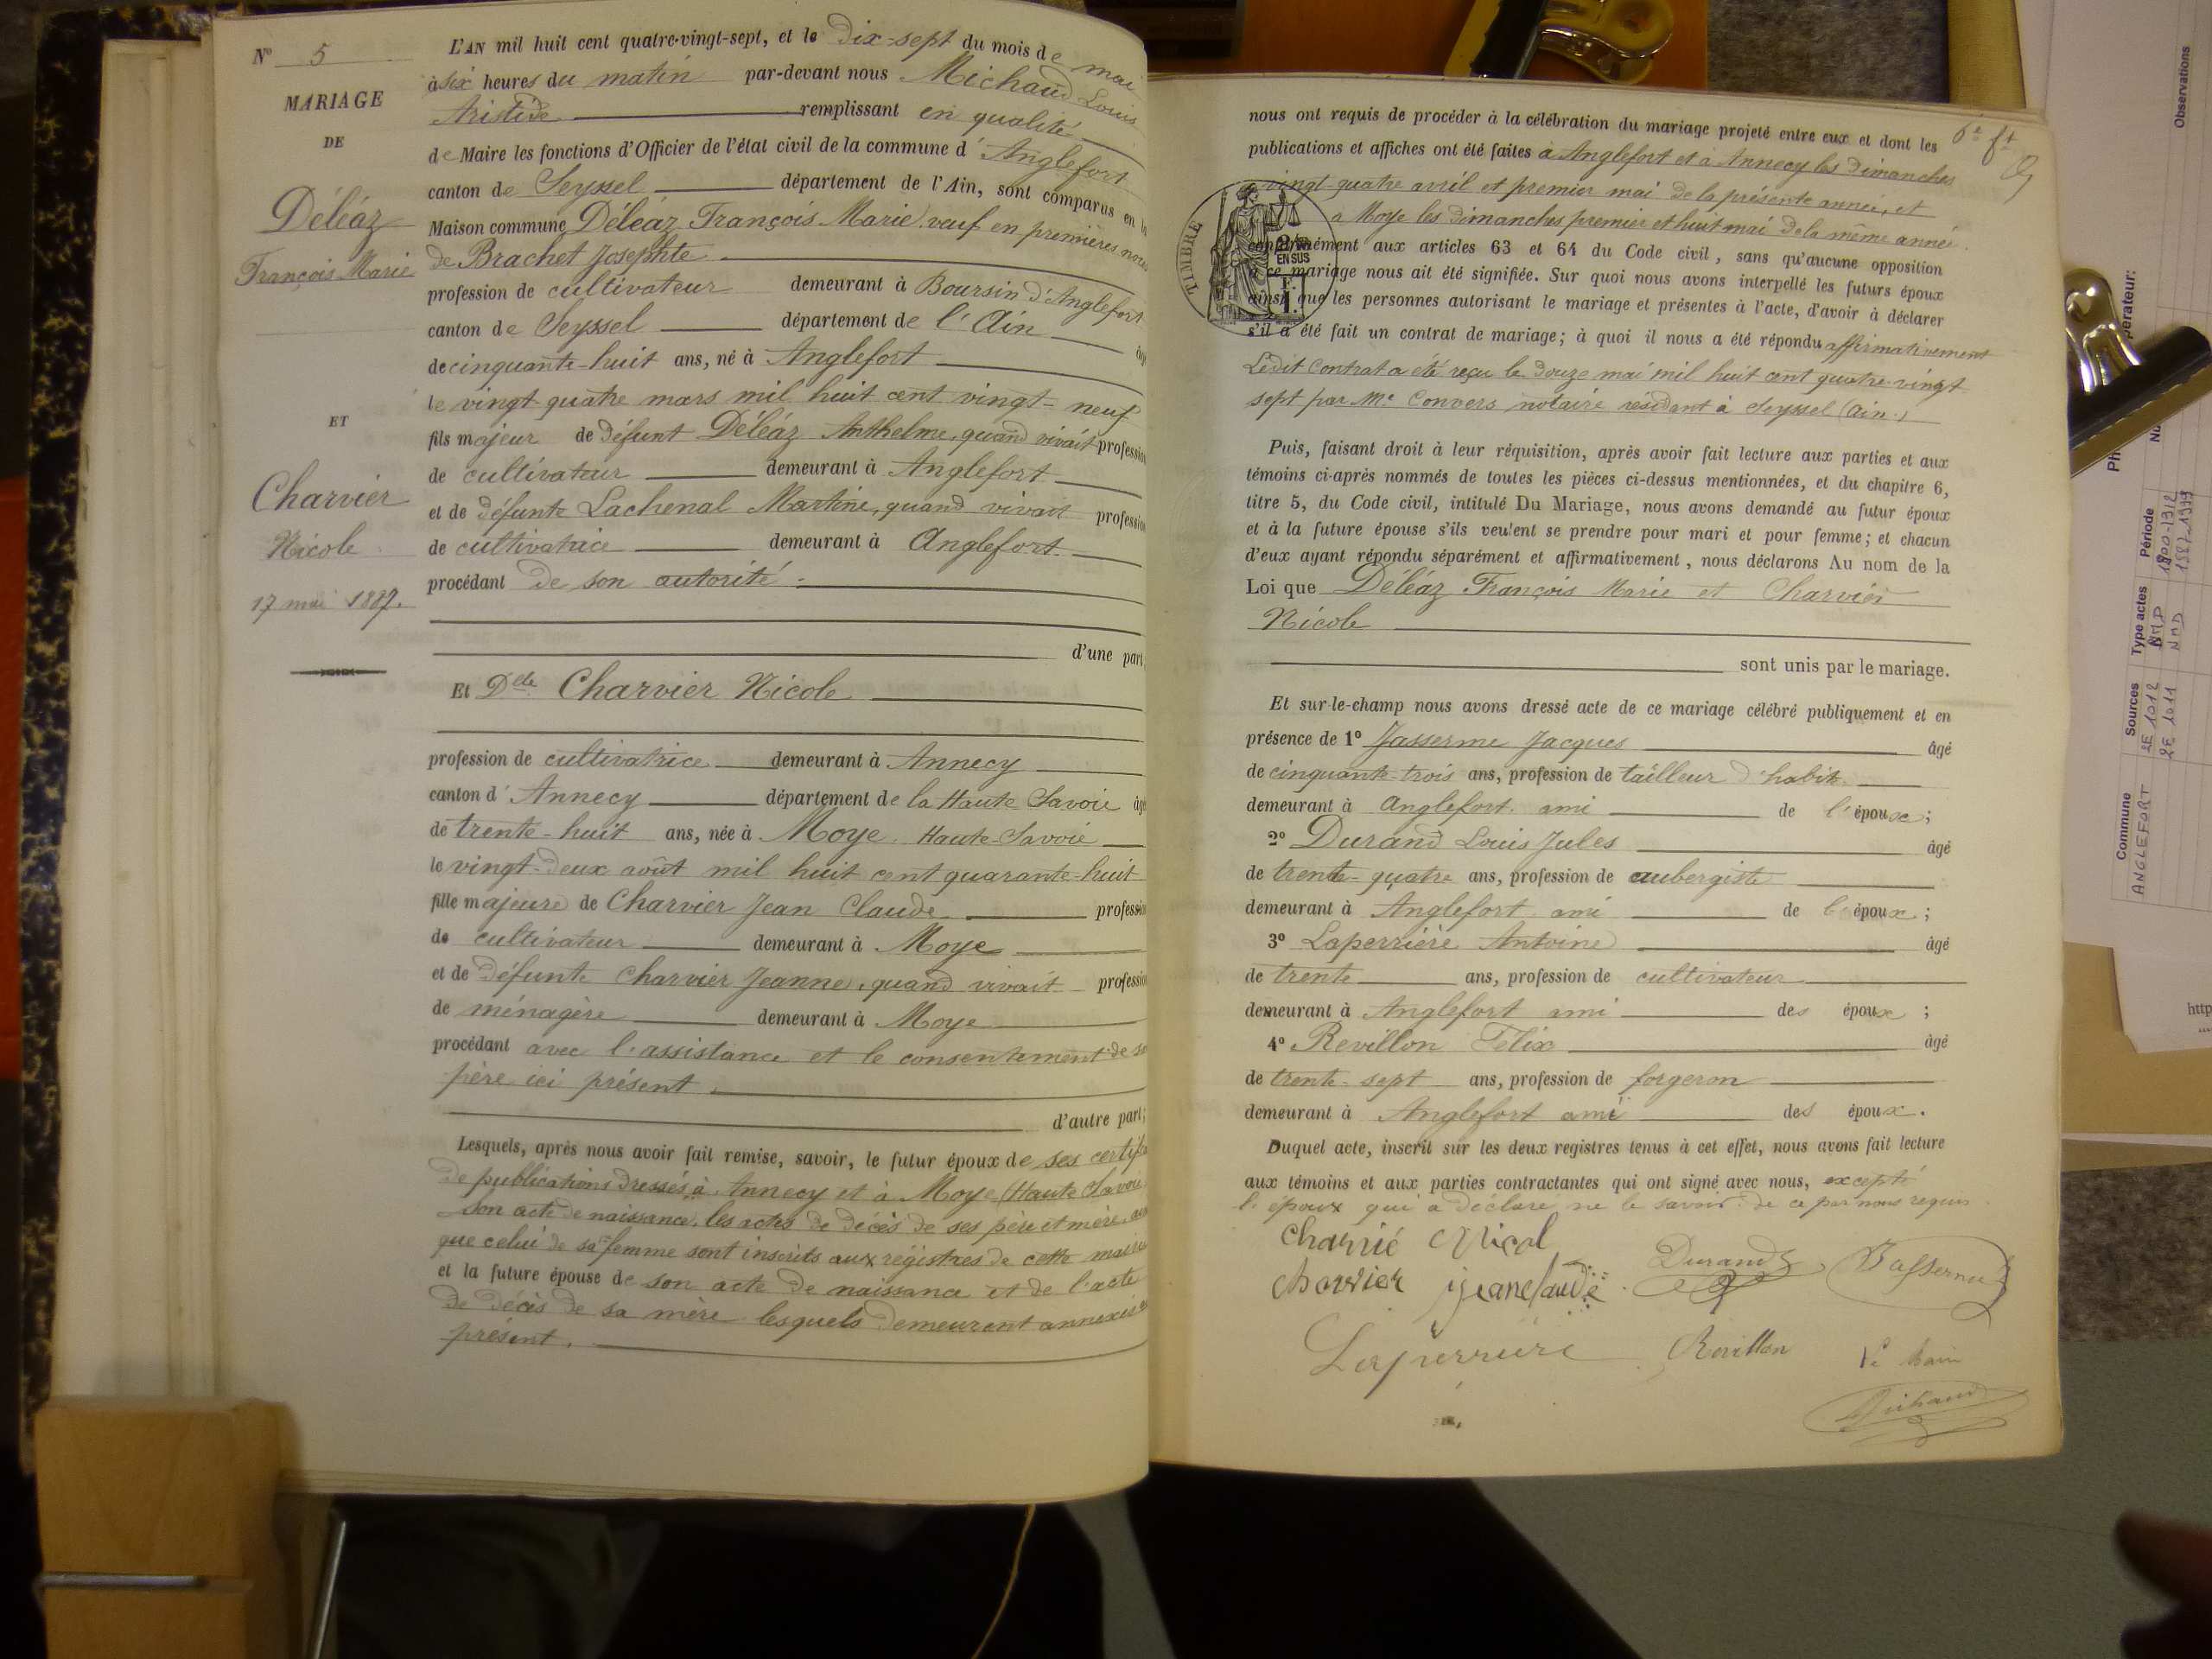 N° 5
MARIAGE
DE
Déléaz
François Marie
ET
Charvier
Nicole
17 mai 1887.
L'AN mil huit cent quatre-vingt-sept, et le dix-sept du mois de mai
à six heures du matin par-devant nous Michaud Louis
Aristide remplissant en qualité
de Maire les fonctions d'Officier de l'état civil de la commune d'Anglefort
canton de Seyssel département de l'Ain, sont comparus en la
Maison commune Déléaz François Marie veuf en premières noces
de Brachet Josephte
profession de cultivateur demeurant à Boursin d'Anglefort
canton de Seyssel département de l'Ain âgé
de cinquante-huit ans, né à Anglefort
le vingt quatre mars mil huit cent vingt-neuf
fils majeur de défunt Déléaz Anthelme, quand vivait profession
de cultivateur demeurant à Anglefort
et de défunte Lachenal Martine, quand vivait profession
de cultivatrice demeurant à Anglefort
procédant de son autorité
d'une part,
Et Delle Charvier Nicole
profession de cultivatrice demeurant à Annecy
canton d'Annecy département de la Haute Savoie âgé
de trente-huit ans, née à Moye Haute-Savoie
le vingt-deux août mil huit cent quarante-huit
fille majeure de Charvier Jean Claude profession
de cultivateur demeurant à Moye
et de défunte Charvier Jeanne, quand vivait profession
de ménagère demeurant à Moye
procédant avec l'assistance et le consentement de so
père ici présent.
d'autre part;
Lesquels, après nous avoir fait remise, savoir, le futur époux de ses certifi
de publications dressés à Annecy et à Moye (Haute Savoie
Son acte de naissance, les actes de décès de ses père et mère,
que celui de sa femme sont inscrits aux registres de cette mairie
et la future épouse de son acte de naissance et de l'acte
de décès de sa mère lesquels demeurent annexés
présent.
nous ont requis de procéder à la célébration du mariage projeté entre eux et dont les
publications et affiches ont été faites à Anglefort et à Annecy les dimanches
vingt quatre avril et premier mai de la présente année, et
à Moye les dimanches premier et huit mai de la même année.
TIMBRE
2/10 EN SUS
conformément aux articles 63 et 64 du Code civil, sans qu'aucune opposition
à ce mariage nous ait été signifiée. Sur quoi nous avons interpellé les futurs époux
ainsi que les personnes autorisant le mariage et présentes à l'acte, d'avoir à déclarer
s'il a été fait un contrat de mariage; à quoi il nous a été répondu affirmativement
Ledit contrat a été reçu le douze mai mil huit cent quatre-vingt
sept par Me Convers notaire résidant à Seyssel (Ain.)
Puis, faisant droit à leur réquisition, après avoir fait lecture aux parties et aux
témoins ci-après nommés de toutes les pièces ci-dessus mentionnées, et du chapitre 6,
titre 5, du Code civil, intitulé Du Mariage, nous avons demandé au futur époux
et à la future épouse s'ils veulent se prendre pour mari et pour femme; et chacun
d'eux ayant répondu séparément et affirmativement, nous déclarons Au nom de la
Loi que Déléaz François Marie et Charvier
Nicole
sont unis par le mariage.
Et sur-le-champ nous avons dressé acte de ce mariage célébré publiquement et en
présence de 1° Jasserme Jacques âgé
de cinquante-trois ans, profession de tailleur d'habit
demeurant à Anglefort ami de l'épouse;
2° Durand Louis Jules âgé
de trente-quatre ans, profession de aubergiste
demeurant à Anglefort ami de l'époux;
3° Laperrière Antoine âgé
de trente ans, profession de cultivateur
demeurant à Anglefort ami des époux;
4° Revillon Félix âgé
de trente-sept ans, profession de forgeron
demeurant à Anglefort ami des époux.
Duquel acte, inscrit sur les deux registres tenus à cet effet, nous avons fait lecture
aux témoins et aux parties contractantes qui ont signé avec nous, excepté
l'époux qui a déclaré ne le savoir de ce par nous requis
charvié Nicol
charvier jeanclaude Durand
Laperrière Revillon
Michaud
Observations
Période
1900-1912
1887-1899
Type actes
NMD
NMD
Sources
2E 1012
2E 1011
Commune
ANGLEFORT
http